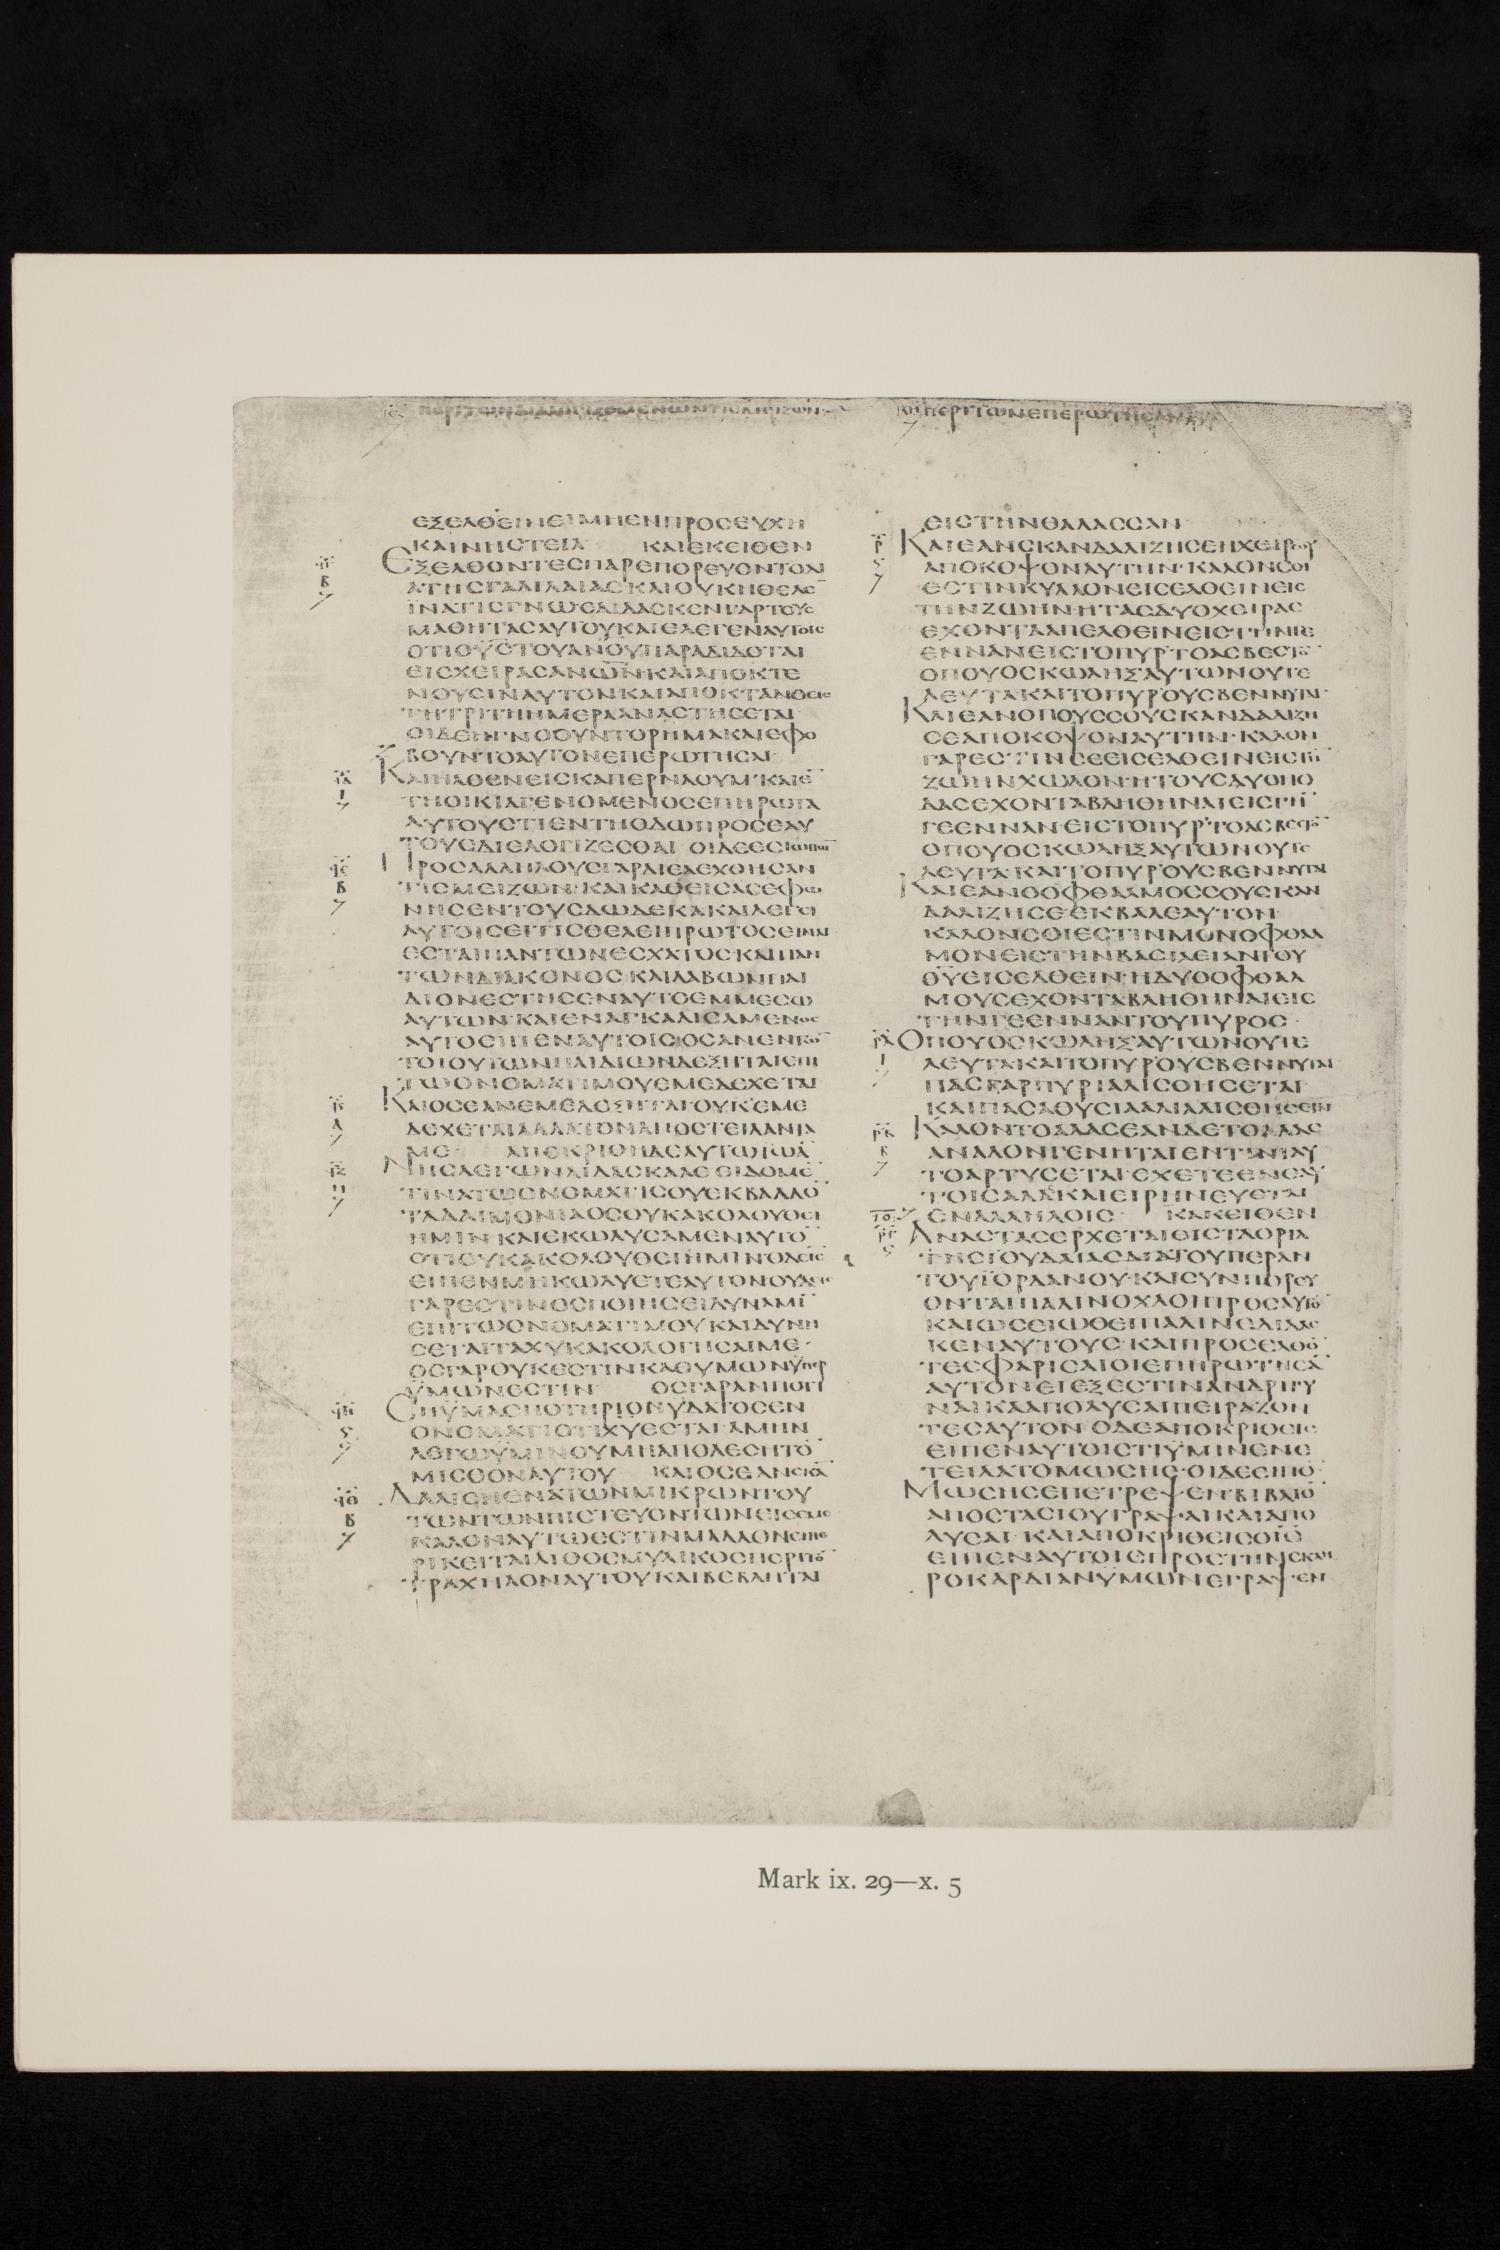 εξελθεινειμηενπροσευχη
καινηστεια καιεκειθεν
Εξελθοντεσπαρεπορευοντοδι
ατησγαλιλαιασκαιουκηθελε̅
ϊνατισγνωεδιδασκενγαρτουσ
μαθητασαυτουκαιελεγεναυτοισ
οτιουστουανουπαραδιδοται
εισχειρασανω̅νκαιαποκτε
νουσιναυτονκαιαποκτανθεισ
τητριτηημερααναστησεται
οιδεηγνοουντορημακαιεφο
βουντοαυτονεπερωτησαι
Καιηλθενεισκαπερναουμ·καιε̅
τηοικιαγενομενοσεπηρωτα
αυτουστιεντηοδωπροσεαυ
τουσδιελογιζεσθαι οιδεεσιωπω̅
Προσαλληλουσγαρδιελεχθησαν
τισμειζων·καικαθεισασεφω
νησεντουσδωδεκακαιλεγει
αυτοισειτισθελειπρωτοσειναι
εσταιπαντωνεσχατοσ·καιπαν
τωνδιακονοσ·καιλαβωνπαι
διονεστησεναυτοεμμεσω
αυτων·καιεναγκαλισαμενοσ
αυτοειπεναυτοισ·οσανεντω̅
τοιουτωνπαιδιωνδεξηταιεπι
τωονοματιμουεμεδεχεται
Καιοσεανεμεδεξηταιουκεμε
δεχεταιαλλατοναποστειλαντα
με απεκριθηδεαυτωϊωα̅
Νησλεγωνδιδασκαλεειδομε̅
τινατωονοματισουεκβαλλο̅
ταδαιμονιαοσουκακολουθει
ημιν·καιεκωλυσαμεναυτο̅
οτιουκακολουθειημιν·οδεισ
ειπενμηκωλυετεαυτονουδεισ
γαρεστινοσποιησειδυναμι̅
επιτωονοματιμουκαιδυνη
σεταιταχυκακολογησαιμε·
οσγαρουκεστινκαθυμωνϋπερ
ϋμωνεστιν οσγαρανποτι
Σηϋμασποτηριονϋδατοσεν
ονοματιοτιχυεσται·αμην
λεγωϋμινουμηαπολεσητο̅
μισθοναυτου καιοσεανσκα̅
Δαλισηενατωνμικρωντου
τωντωνπιστευοντωνεισεμε
καλοναυτωεστινμαλλονειπε
ρικειταιλιθοσμυλικοσπεριτο̅
τραχηλοναυτουκαιβεβληται
ειστηνθαλασσαν
Καιεανσκανδαλιζησεηχειρσου
αποκοψοναυτην·καλονσοι
εστινκυλλονεισελθεινεισ
τηνζωην·ητασδυοχειρασ
εχονταπελθεινειστηνγε
ενναν·ειστοπυρ·τοασβεστο̅
οπουοσκωληξαυτωνουτε
λευτακαιτοπυρουσβεννυται·
Καιεανοπουσσουσκανδαλιζη
σεαποκοψοναυτην·καλον
γαρεστινσεεισελθεινειστη̅
ζωηνχωλον·ητουσδυοπο
δασεχονταβληθηναιειστη̅
γεενναν·ειστοπυρ·τοασβεστο̅
οπουοσκωληξαυτωνουτε
λευτα·καιτοπυρουσβεννυται
Καιεανοοφθαλμοσσουσκαν
δαλιζησεεκβαλεαυτον·
καλονσοιεστινμονοφθαλ
μονειστηνβασιλειαντου
θυεισελθειν·ηδυοοφθαλ
μουσεχονταβληθηναιεισ
τηνγεενναντουπυροσ·
Οπουοσκωληξαυτωνουτε
λευτακαιτοπυρουσβεννυται
πασγαρπυριαλισθησεται·
καιπασαθυσιααλιαλισθησεται
Καλοντοαλασεανδετοαλασ
αναλονγενηταιεντινιαυ
τοαρτυσεται·εχετεενεαυ
τοισαλακαιειρηνευεται
εναλληλοισ κακειθεν
Αναστασερχεταιειστaορια
τησϊουδαιασδιατουπεραν
τουϊορδανου·καισυνπορευ
ονταιπαλινοχλοιπροσαυτο̅
καιωσειωθειπαλινεδιδασ
κεναυτουσ·καιπροσελθο̅
τεσφαρισαιοιεπηρωτησα̅
αυτονειεξεστινανδριγυ
ναικααπολυσαιπειραζον
τεσαυτον·οδεαποκριθεισ
ειπεναυτοιστιϋμινενε
τειλατομωσησ·οιδεειπο̅
Μωσησεπετρεψεν·βιβλιο̅
αποστασιουγραψαικαιαπο
λυσαι·καιαποκριθεισοι̅σ̅
ειπεναυτοισπροστηνσκλη
ροκαρδιανϋμωνεγραψεν
Mark ix. 29—x. 5